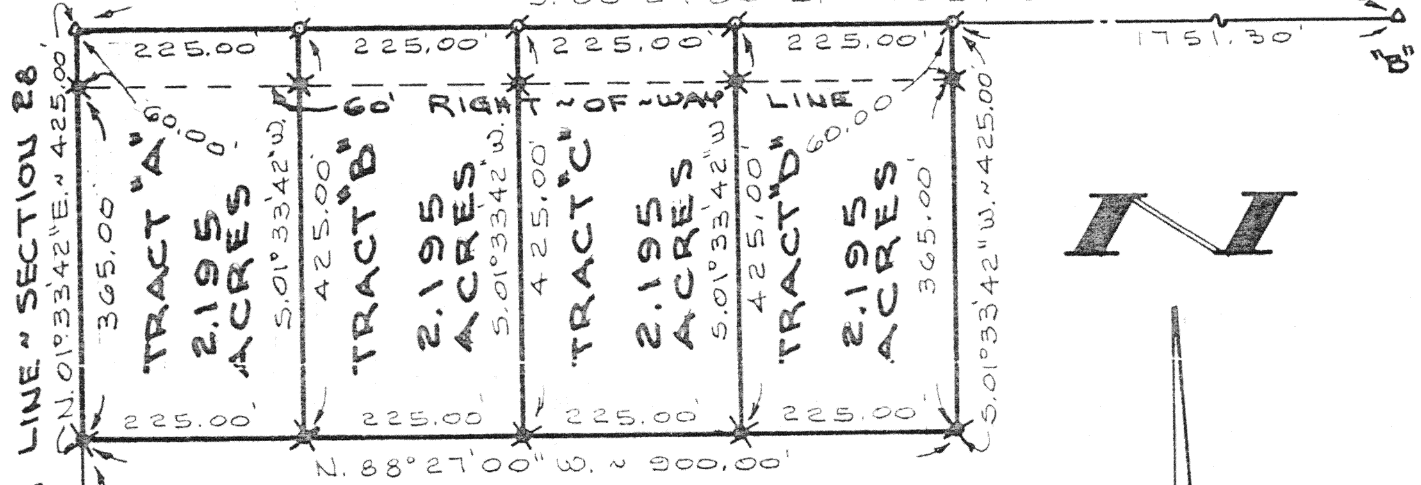 225.00' 225.00' 225.00' 225.00' 1751.30'
"B"
LINE ~ SECTION 28
N. 01°33'42"E. ~ 425.00'
60' RIGHT ~ OF ~ WAY LINE
60.00'
365.00'
TRACT "A"
2.195
ACRES
S.01°33'42"W.
425.00'
TRACT "B"
2.195
ACRES
S.01°33'42"W.
425.00'
TRACT "C"
2.195
ACRES
S.01°33'42"W
425.00'
TRACT "D"
60.00
2.195
ACRES
365.00'
S.01°33'42"W. ~ 425.00'
N
225.00' 225.00' 225.00' 225.00'
N. 88°27'00" W. ~ 900.00'